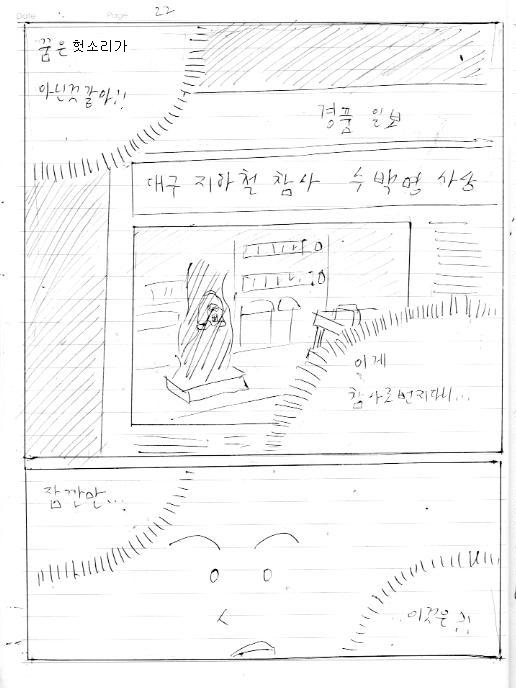 Date
Page 22
꿈은 헛소리가
아닌것 같아!!
경품 일보
대구 지하철 참사 수백명 사상
이게
참사로 번지다니...
잠깐만...
...이것은!!